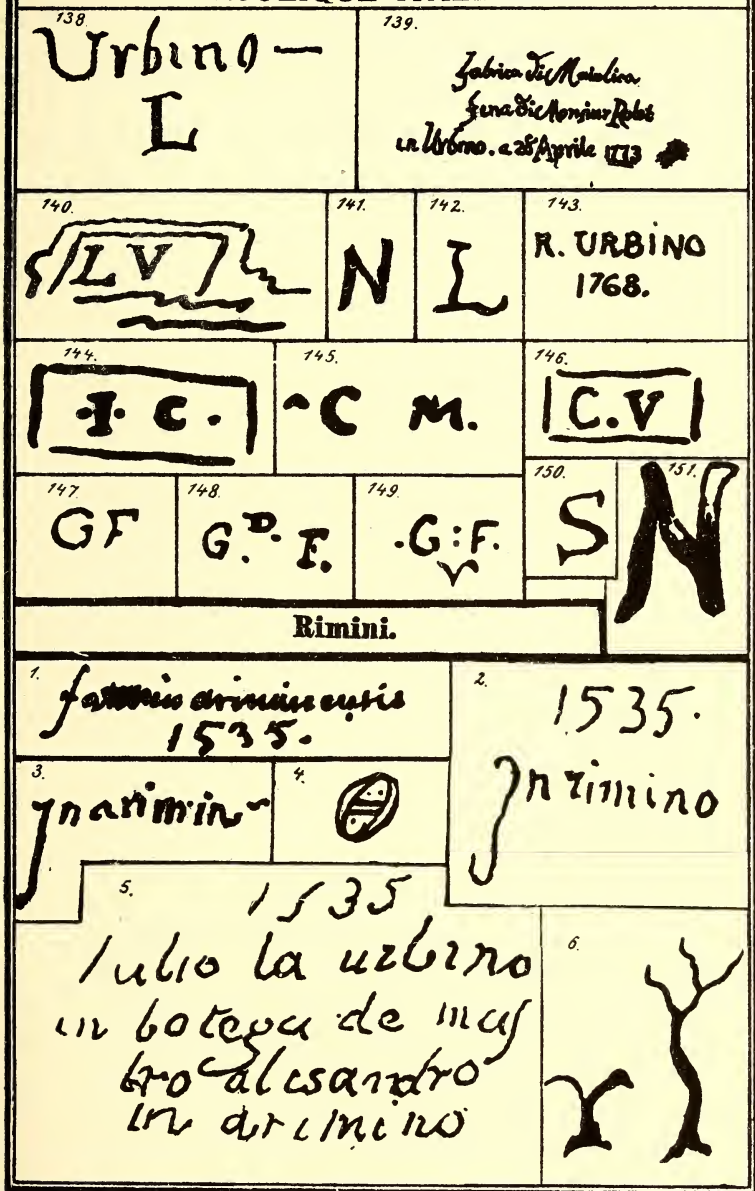 138.
Urbino —
L
139.
Fabrica di Maiolica
fina di Monsiur Rolet
in Urbino. a 28 Aprile 1773
140.
L V
141.
N
142.
L
143.
R. URBINO
1768.
144.
·I· C.
145.
C M.
146.
C.V
147.
GF
148.
G.D. F.
149.
.G:F.
150.
S
151.
N
Rimini.
1.
ariminensis
1535.
2.
1535.
In rimino
3.
In arimin
4.
5.
1535
Iulio la urbino
in botega de mas
tro alisandro
in arimino
6.